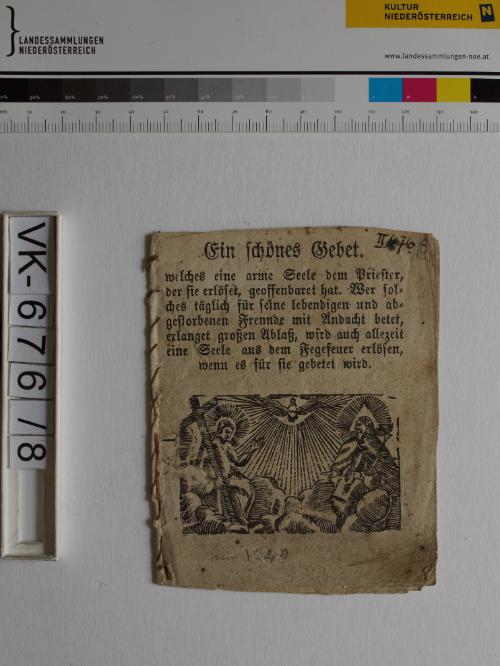 LANDESSAMMLUNGEN
NIEDERÖSTERREICH
KULTUR
NIEDERÖSTERREICH
N
www.landessammlungen-noe.at
VK-676/8
Ein schönes Gebet.
welches eine arme Seele dem Priester,
der sie erlöset, geoffenbaret hat. Wer sol-
ches täglich für seine lebendigen und ab-
gestorbenen Freunde mit Andacht betet,
erlanget großen Ablaß, wird auch allezeit
eine Seele aus dem Fegefeuer erlösen,
wenn es für sie gebetet wird.